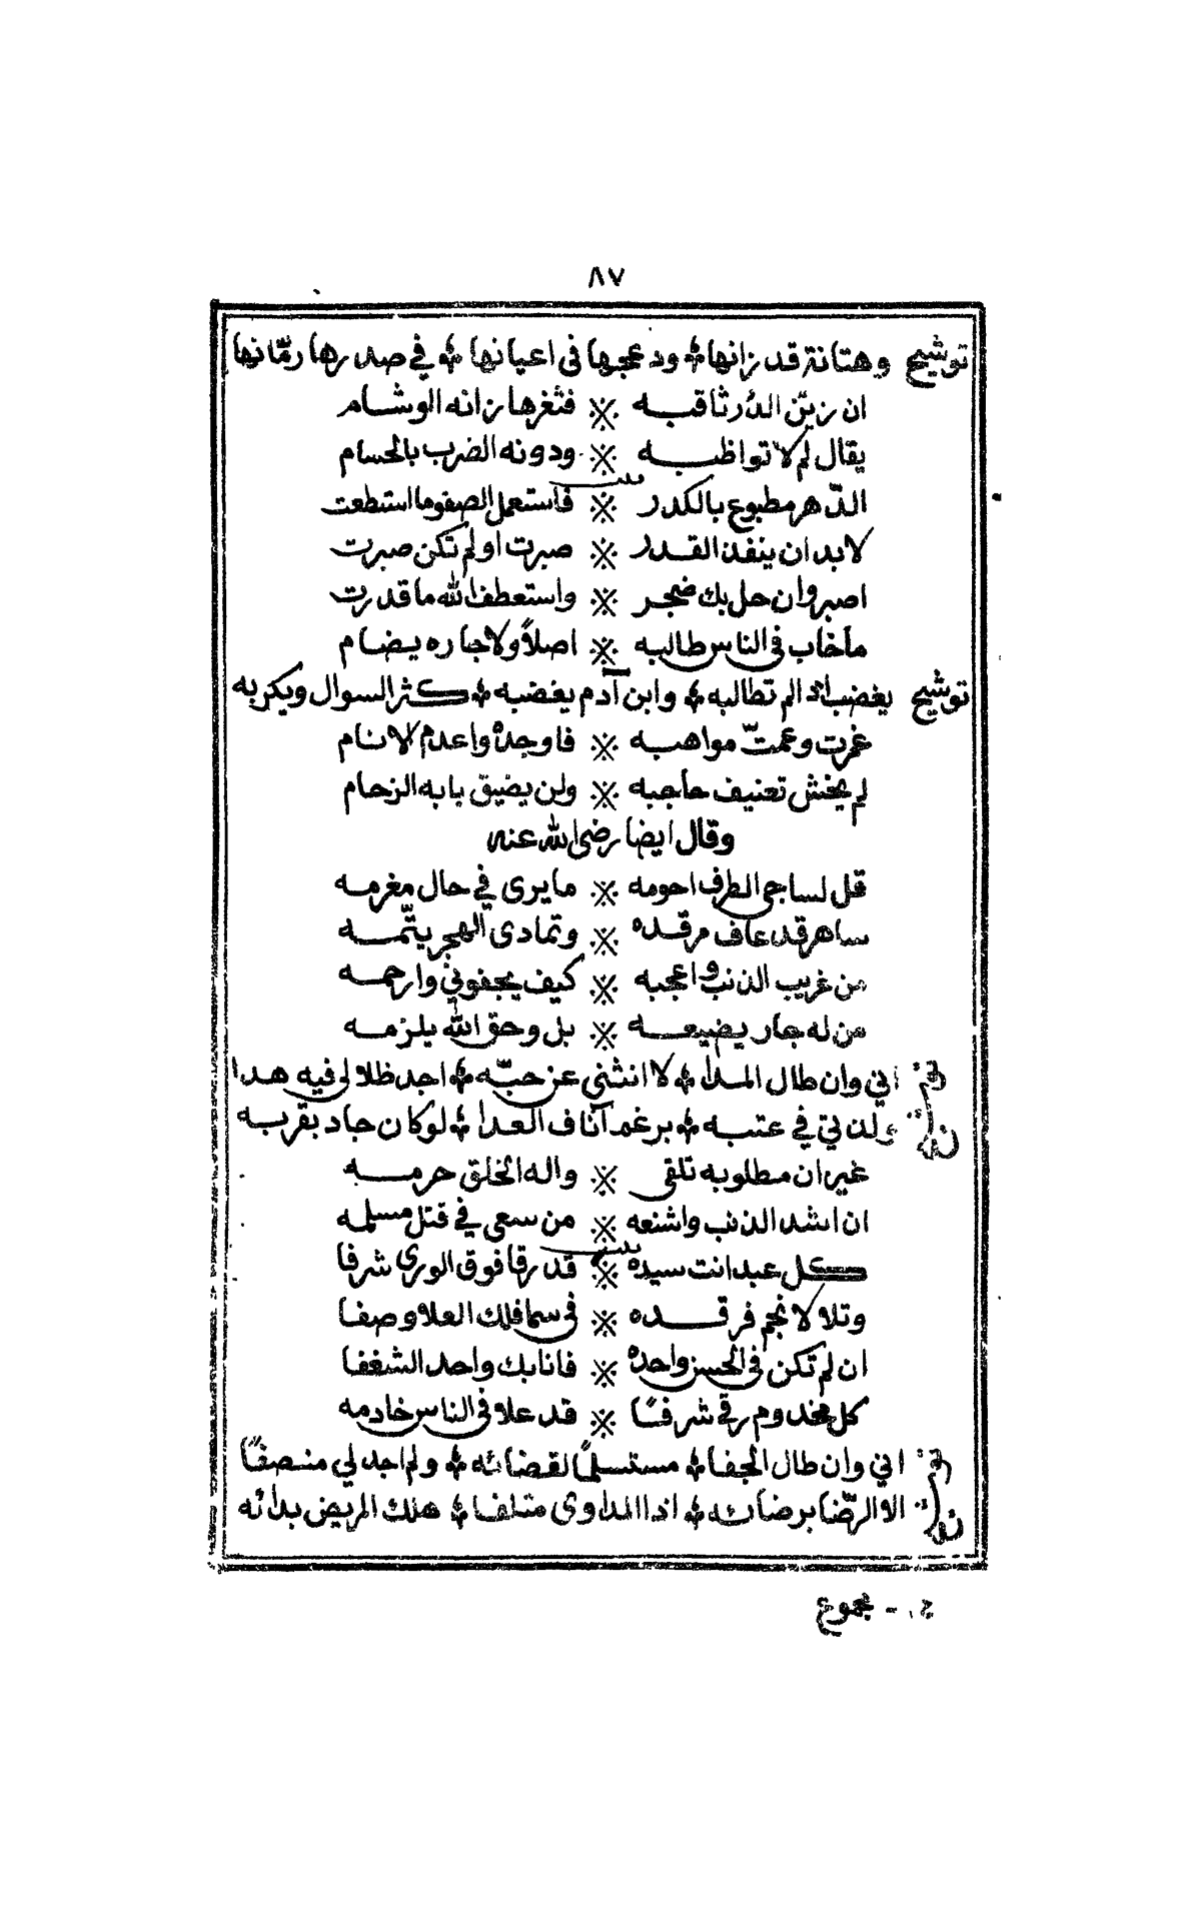 ٨٧
توشيح وهتانة قد زانها ۞ ودعجها فى اعيانها ۞ في صدرها رمّانها
ان زيّن الدُّر ثاقبه ※ فثغرها زانه الوشام
يقال لم لا تواظبه ※ ودونه الضرب بالحسام
بيت
الدّهر مطبوع بالكدر ※ فاستعمل الصفو ما استطعت
لا بد ان ينفذ القدر ※ صبرت او لم تكن صبرت
اصبر وان حل بك ضجر ※ واستعطف الله ما قدرت
ما خاب فى الناس طالبه ※ اصلاً ولا جاره يضام
توشيح يغضب اذا لم تطالبه ۞ وابن آدم يغضبه ۞ كثر السوال ويكربه
غمرت وعمتّ مواهبه ※ فاوجده واعدم الانام
لم يخش تعنيف حاجبه ※ ولن يضيق بابه الزحام
وقال ايضا رضى الله عنه
قل لساجى الطرف احومه ※ ما يرى في حال مغرمه
ساهر قد عاف مرقده ※ وتمادى الهجر يتّمه
من غريب الذنب واعجبه ※ كيف يجفوني وارحمه
من له جار يضيعه ※ بل وحق الله يلزمه
توشيح اني وان طال المدا ۞ لا انثني عن حبّه ۞ اجد ظلالى فيه هدا
ولذ لي في عتبه ۞ برغم آناف العدا ۞ لو كان جاد بقربه
غير ان مطلوبه تلفى ※ واله الخلق حرمه
ان اشد الذنب واشنعه ※ من سعى في قتل مسلمه
بيت
كل عبد انت سيده ※ قد رقا فوق الورى شرفا
وتلا لا نجم فرقده ※ فى سما فلك العلا وصفا
ان لم تكن فى الحسن واحده ※ فانا بك واحد الشغفا
كل مخدوم رقي شرفًا ※ قد علا فى الناس خادمه
توشيح اني وان طال الجفا ۞ مستسلمًا لقضائه ۞ ولم اجد لي منصفًا
الا الرّضا برضائه ۞ اذا المداوى متلفا ۞ هلك المريض بدائه
مجموع